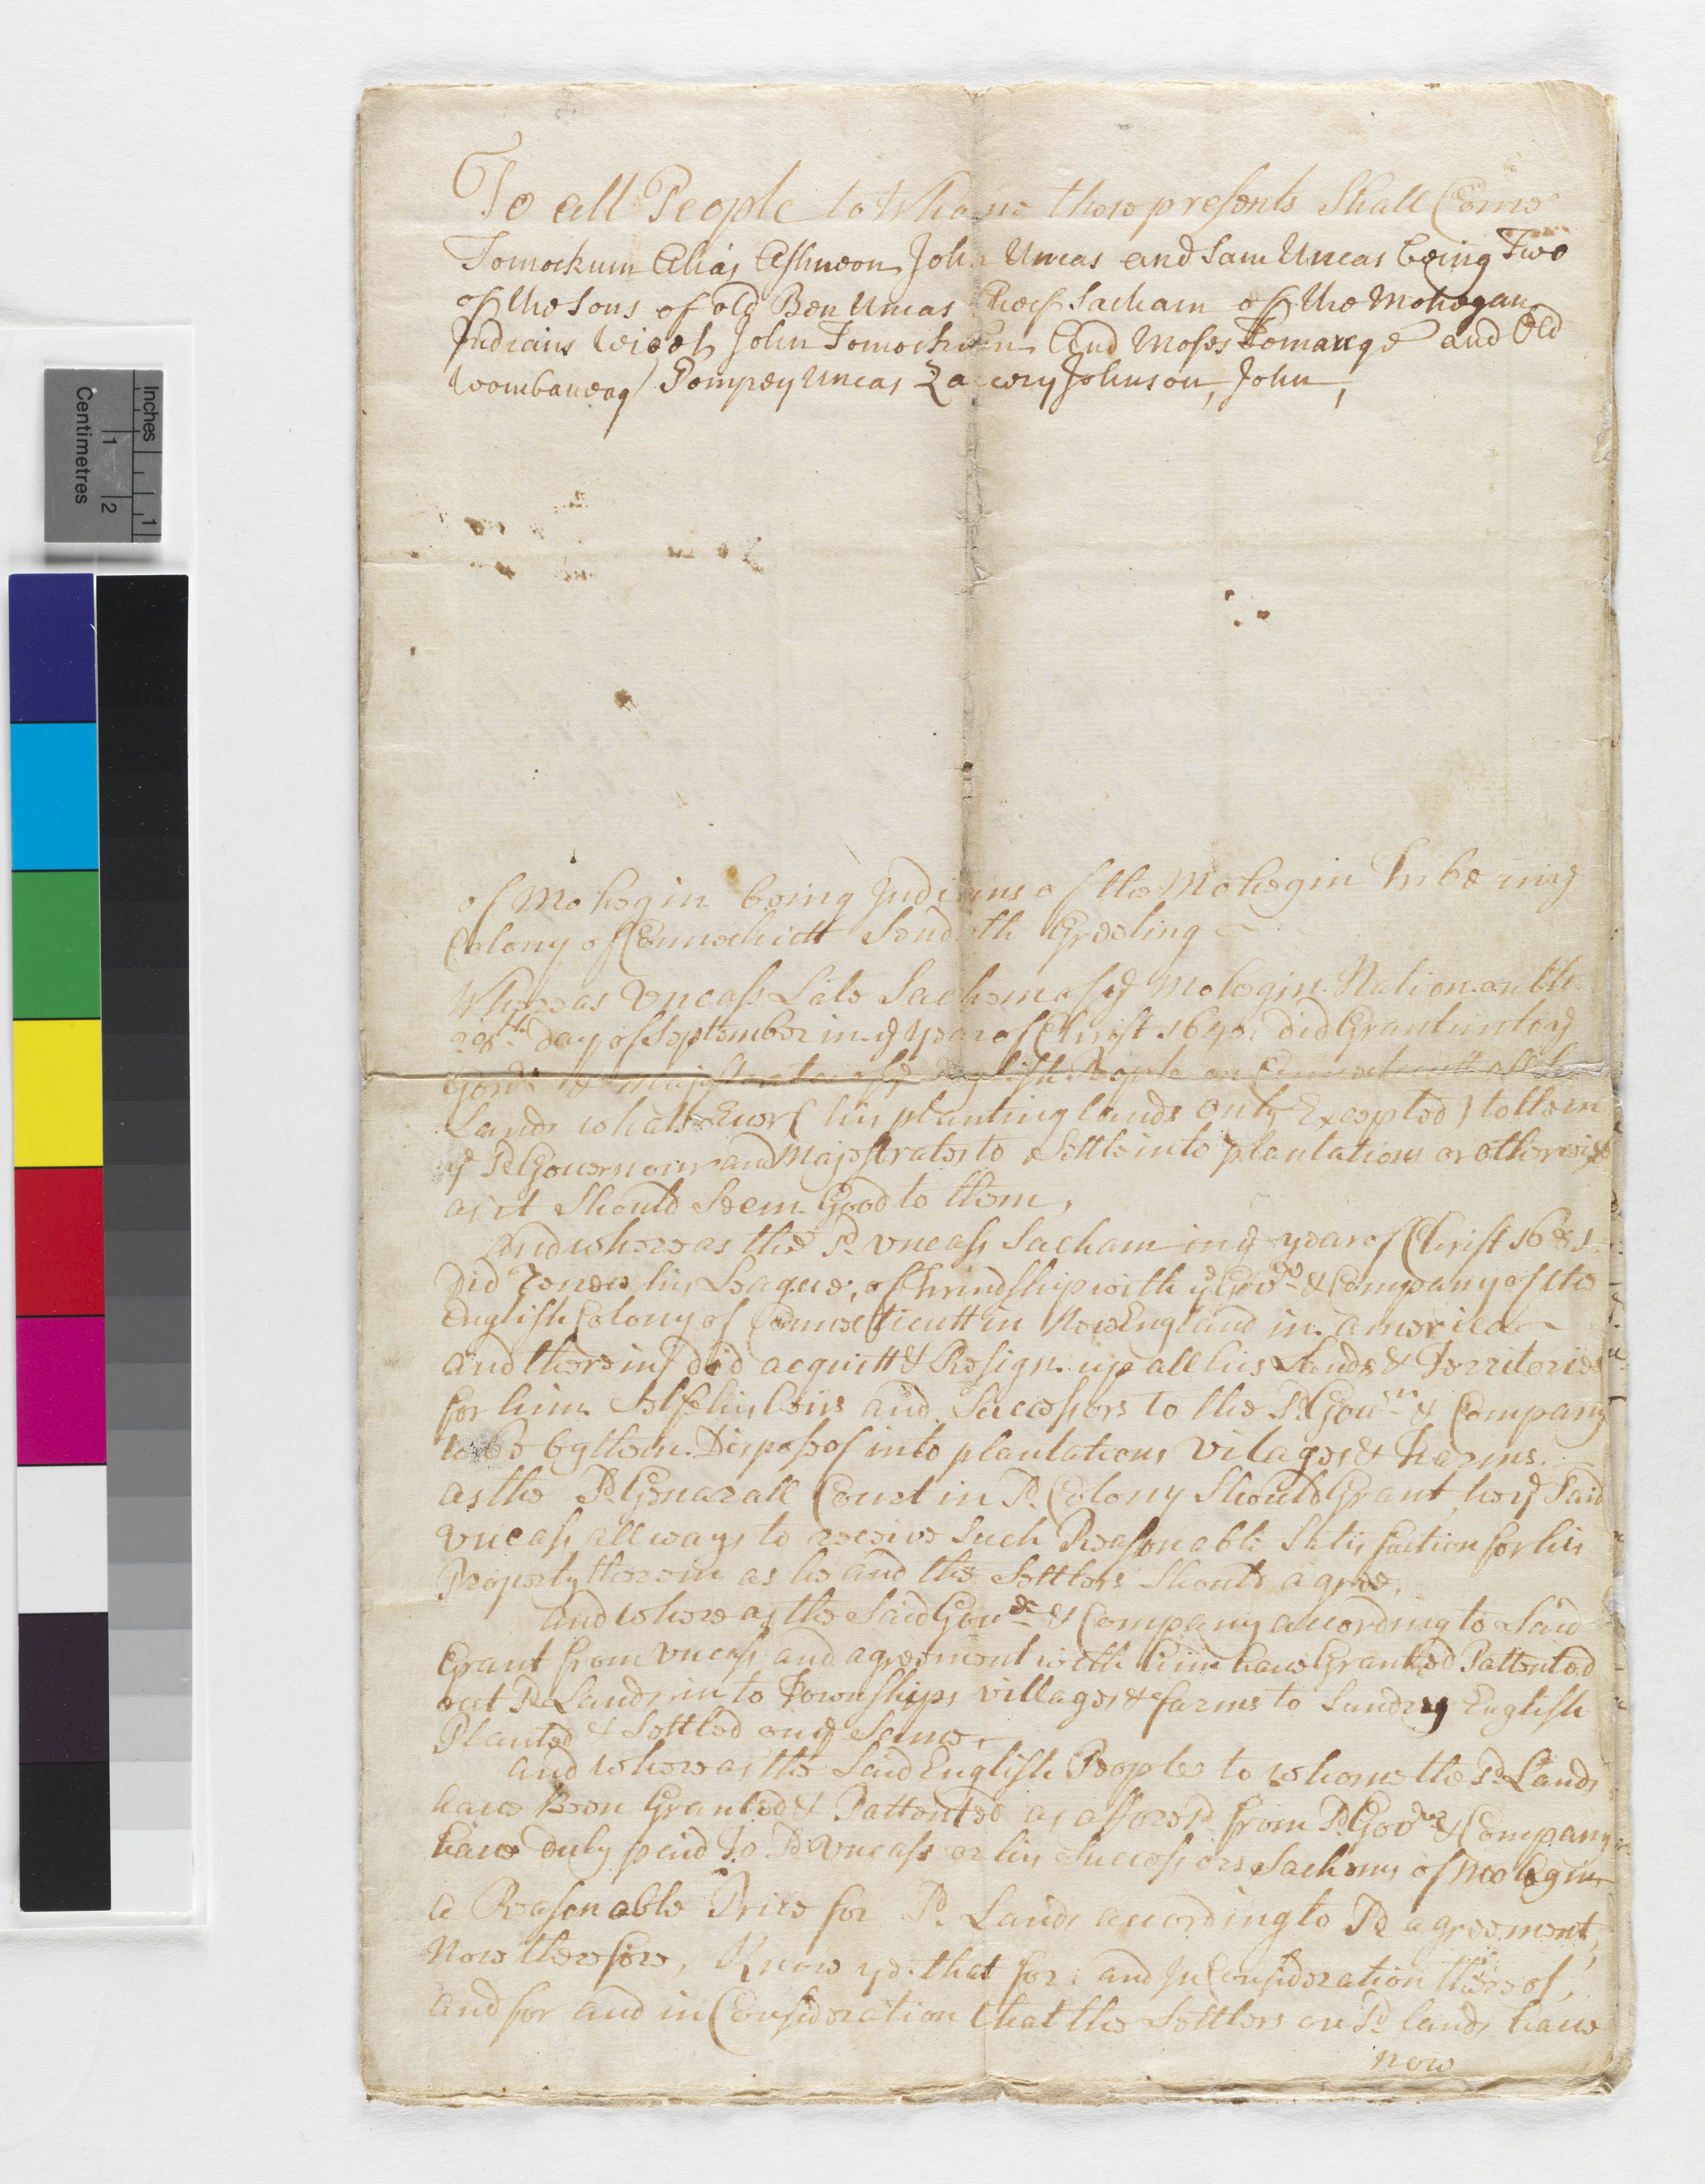 Inches
1
Centimetres
1
2
To all People to Whome these presents Shall Come
Tomockum Alias Ashneon John Uncas and Sam Uncas being Two
of the Sons of old Ben Uncas Cheef Sacham of the Mohegan
Indians John Tomockum And Moses and Old
Woombaneag Pompey Uncas Zacery Johnson, John,
of Mohegin being Indians of the Mohegin Tribe in ye
Colony of Connecticutt Sendeth Greeting
Whereas Vncass Late Sachem of ye Mohegin Nation on the
28th Day of September in ye year of Christ 1640. did Grant unto ye
Govr & Majestrates of ye English People on Connecticutt all his
Lands whatsoever (his planting lands Only Excepted) to them
ye Sd Governour and Majestrates to Settle into plantations or otherwise
as it Should Seem Good to them,
And whereas the Sd Vncass Sacham in ye year of Christ 1681
Did renew his League, of frindship with ye Govr & Company of the
English Colony of Connecticutt in New England in america
and therein did acquitt & Resign up all his Lands & Territories
for him Selfe his heirs and Successors to the Sd Govr & Company
to be by them Disposs of into plantations Vilages & Farms.
as the Sd Generall Court in Sd Colony Should Grant he ye Said
Vncass all ways to receive Such Reasonable Satisfaction for his
Property therein as he and the Settlers Should agree,
and whereas the Said Govr & Company according to Said
Grant from Vncass and agreement with him have Granted Pattented
out Sd Lands in to Townships villages & farms to Sundry English
Planted & Settled on ye Same,
and whereas the Said English People to whome the Sd Lands
have Been Granted & Pattented as aforesd from Sd Govr & Company
have Duly paid To Sd Vncass or his Successors Sachems of Mohegin
a Reasonable Price for Sd Lands according to Sd agreement,
Now therefore, Know ye that for and In Consideration thereof,
and for and in Consideration that the Settlers on Sd lands have
now